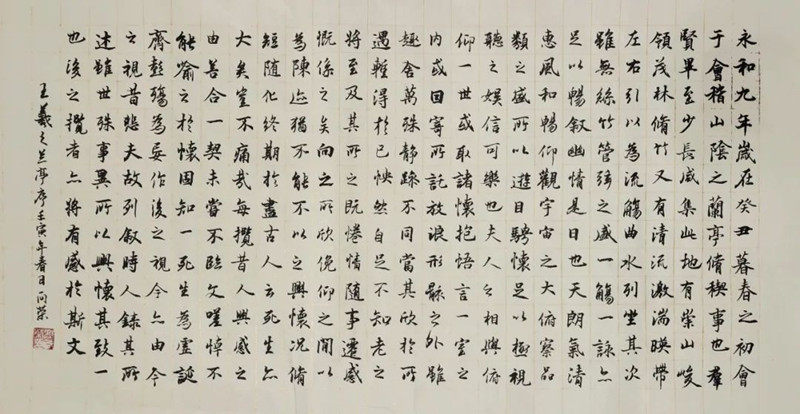 永和九年歲在癸丑暮春之初會
于會稽山陰之蘭亭脩稧事也羣
賢畢至少長咸集此地有崇山峻
領茂林脩竹又有清流激湍暎帶
左右引以為流觴曲水列坐其次
雖無絲竹管弦之盛一觴一詠亦
足以暢敘幽情是日也天朗氣清
惠風和暢仰觀宇宙之大俯察品
類之盛所以遊目騁懷足以極視
聽之娛信可樂也夫人之相與俯
仰一世或取諸懷抱悟言一室之
內或因寄所託放浪形骸之外雖
趣舍萬殊靜躁不同當其欣於所
遇暫得於己怏然自足不知老之
將至及其所之既惓情隨事遷感
慨係之矣向之所欣俛仰之閒以
為陳迹猶不能不以之興懷況脩
短隨化終期於盡古人云死生亦
大矣豈不痛哉每攬昔人興感之
由若合一契未嘗不臨文嗟悼不
能喻之於懷固知一死生為虛誕
齊彭殤為妄作後之視今亦由今
之視昔悲夫故列敘時人錄其所
述雖世殊事異所以興懷其致一
也後之攬者亦將有感於斯文
王羲之兰亭序壬寅年春日向荣